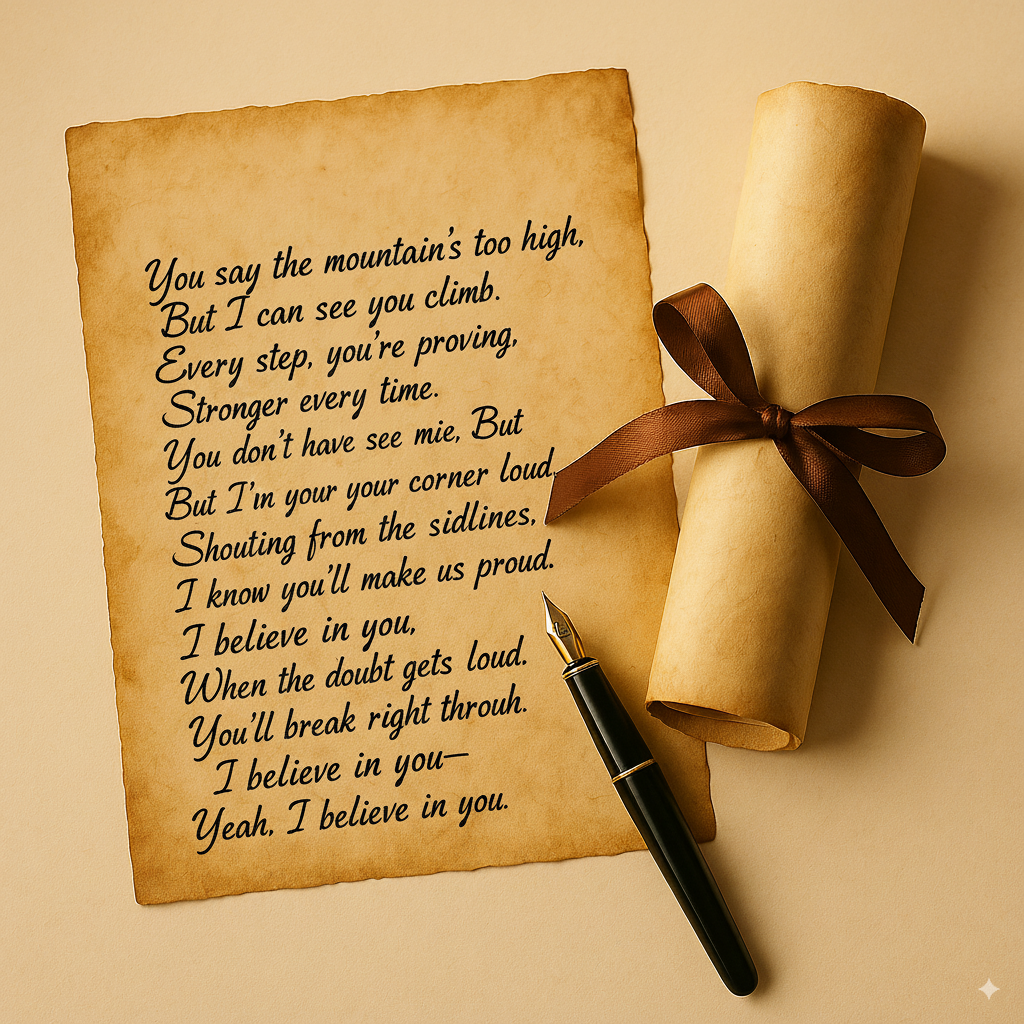 You say the mountain's too high,
But I can see you climb.
Every step, you're proving,
Stronger every time.
You don't have see mie, But
But I'm your your corner loud,
Shouting from the sidlines,
I know you'll make us proud.
I believe in you,
When the doubt gets loud.
You'll break right throuh.
I believe in you—
Yeah, I believe in you.